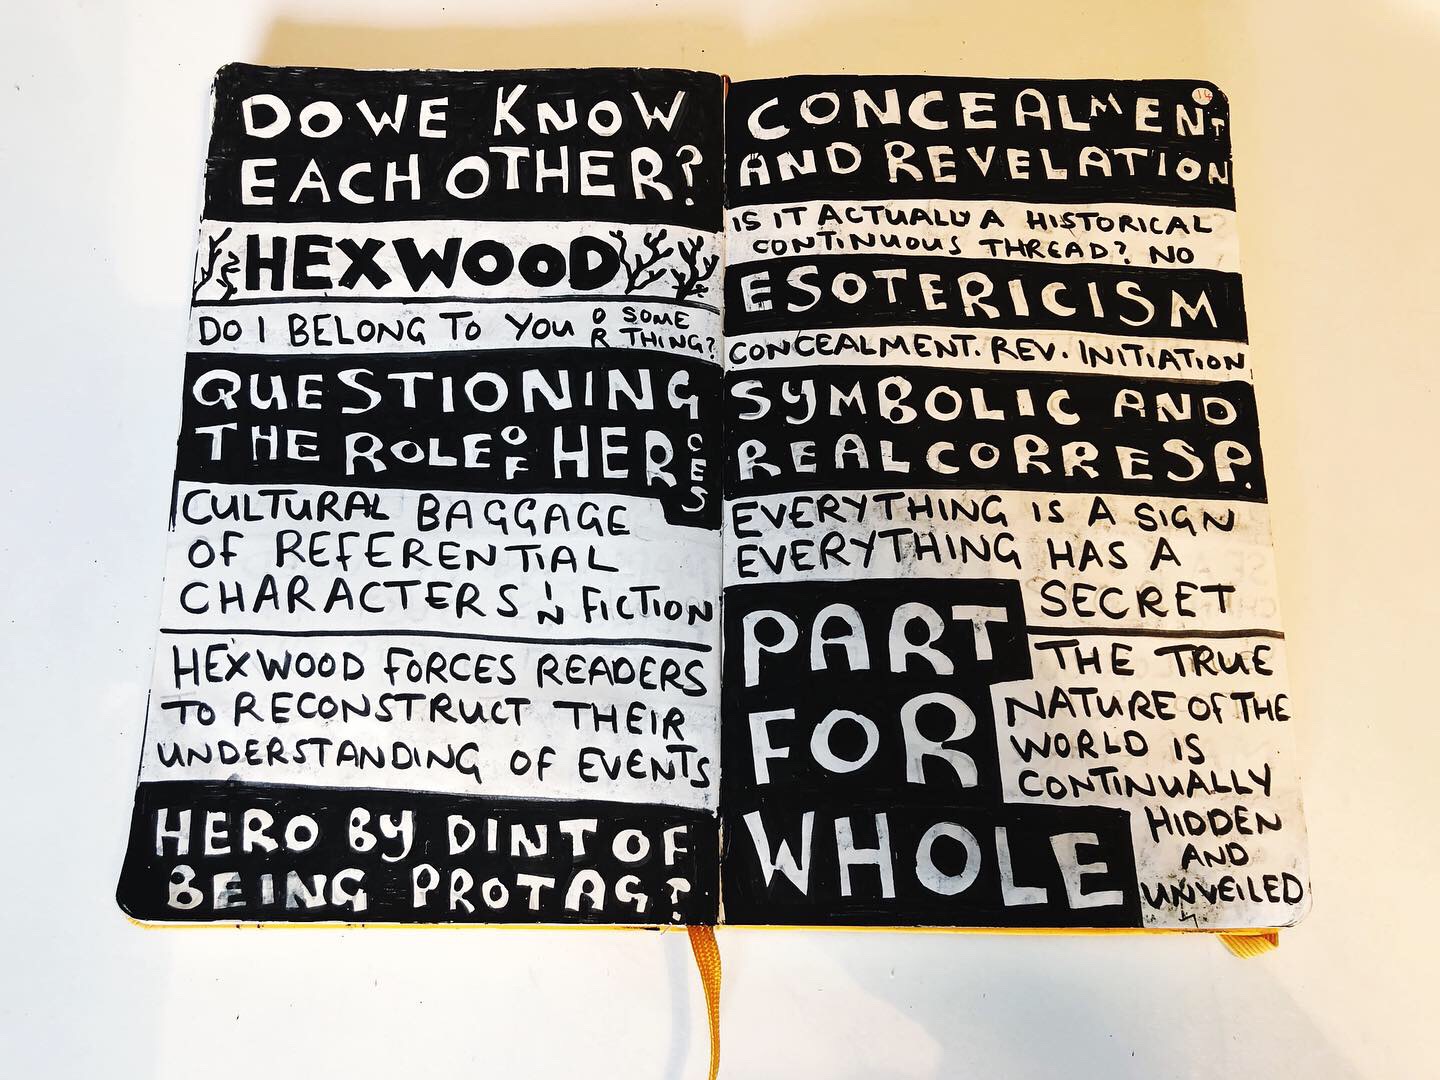 DO WE KNOW
EACH OTHER?
HEXWOOD
DO I BELONG TO YOU OR SOME THING?
QUESTIONING
THE ROLE OF HER CES
CULTURAL BAGGAGE
OF REFERENTIAL
CHARACTERS IN FICTION
HEXWOOD FORCES READERS
TO RECONSTRUCT THEIR
UNDERSTANDING OF EVENTS
HERO BY DINT OF
BEING PROTAG?
14
CONCEALMENT
AND REVELATION
IS IT ACTUALLY A HISTORICAL
CONTINUOUS THREAD? NO
ESOTERICISM
CONCEALMENT. REV. INITIATION
SYMBOLIC AND
REAL CORRESP.
EVERYTHING IS A SIGN
EVERYTHING HAS A
SECRET
PART
FOR
WHOLE
THE TRUE
NATURE OF THE
WORLD IS
CONTINUALLY
HIDDEN
AND
UNVEILED